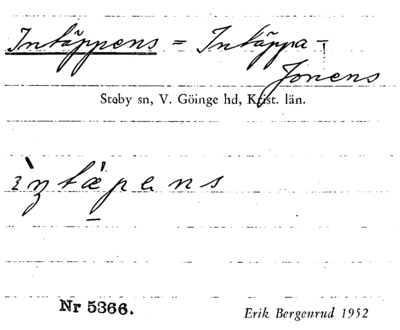 Intäppens = Intäppa-
Jonens
Stoby sn, V. Göinge hd, Krist. län.
ìntǽpens
Nr 5366.
Erik Bergenrud 1952